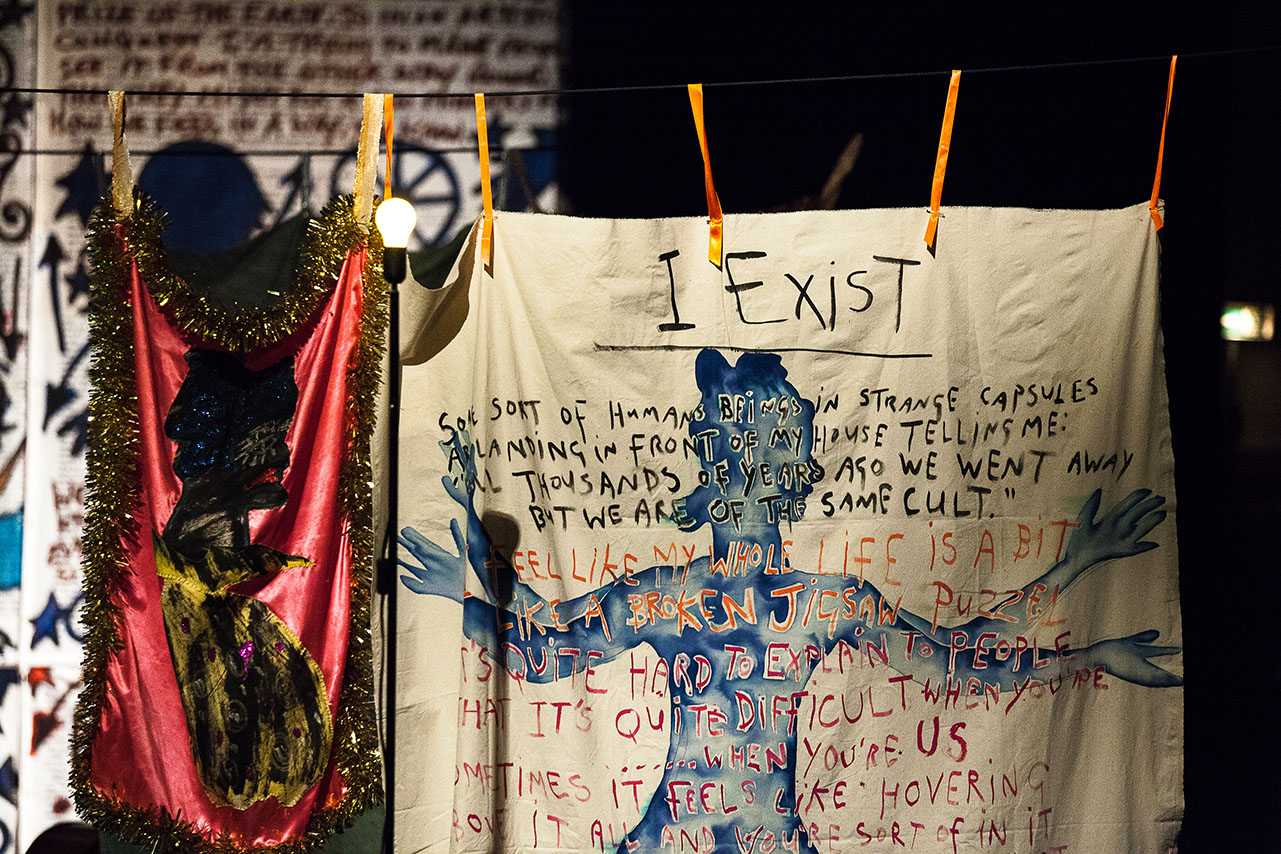 PRIZE OF THE EARTH
SEE IT FROM THE OTHER WAY
I EXIST
SOME SORT OF HUMANS BEINGS IN STRANGE CAPSULES
LANDING IN FRONT OF MY HOUSE TELLING ME:
"ALL THOUSANDS OF YEARS AGO WE WENT AWAY
BUT WE ARE OF THE SAME CULT."
I FEEL LIKE MY WHOLE LIFE IS A BIT
LIKE A BROKEN JIGSAW PUZZEL
IT'S QUITE HARD TO EXPLAIN TO PEOPLE
THAT IT'S QUITE DIFFICULT WHEN YOU'RE
.......WHEN YOU'RE US
SOMETIMES IT FEELS LIKE HOVERING
ABOVE IT ALL AND YOU'RE SORT OF IN IT